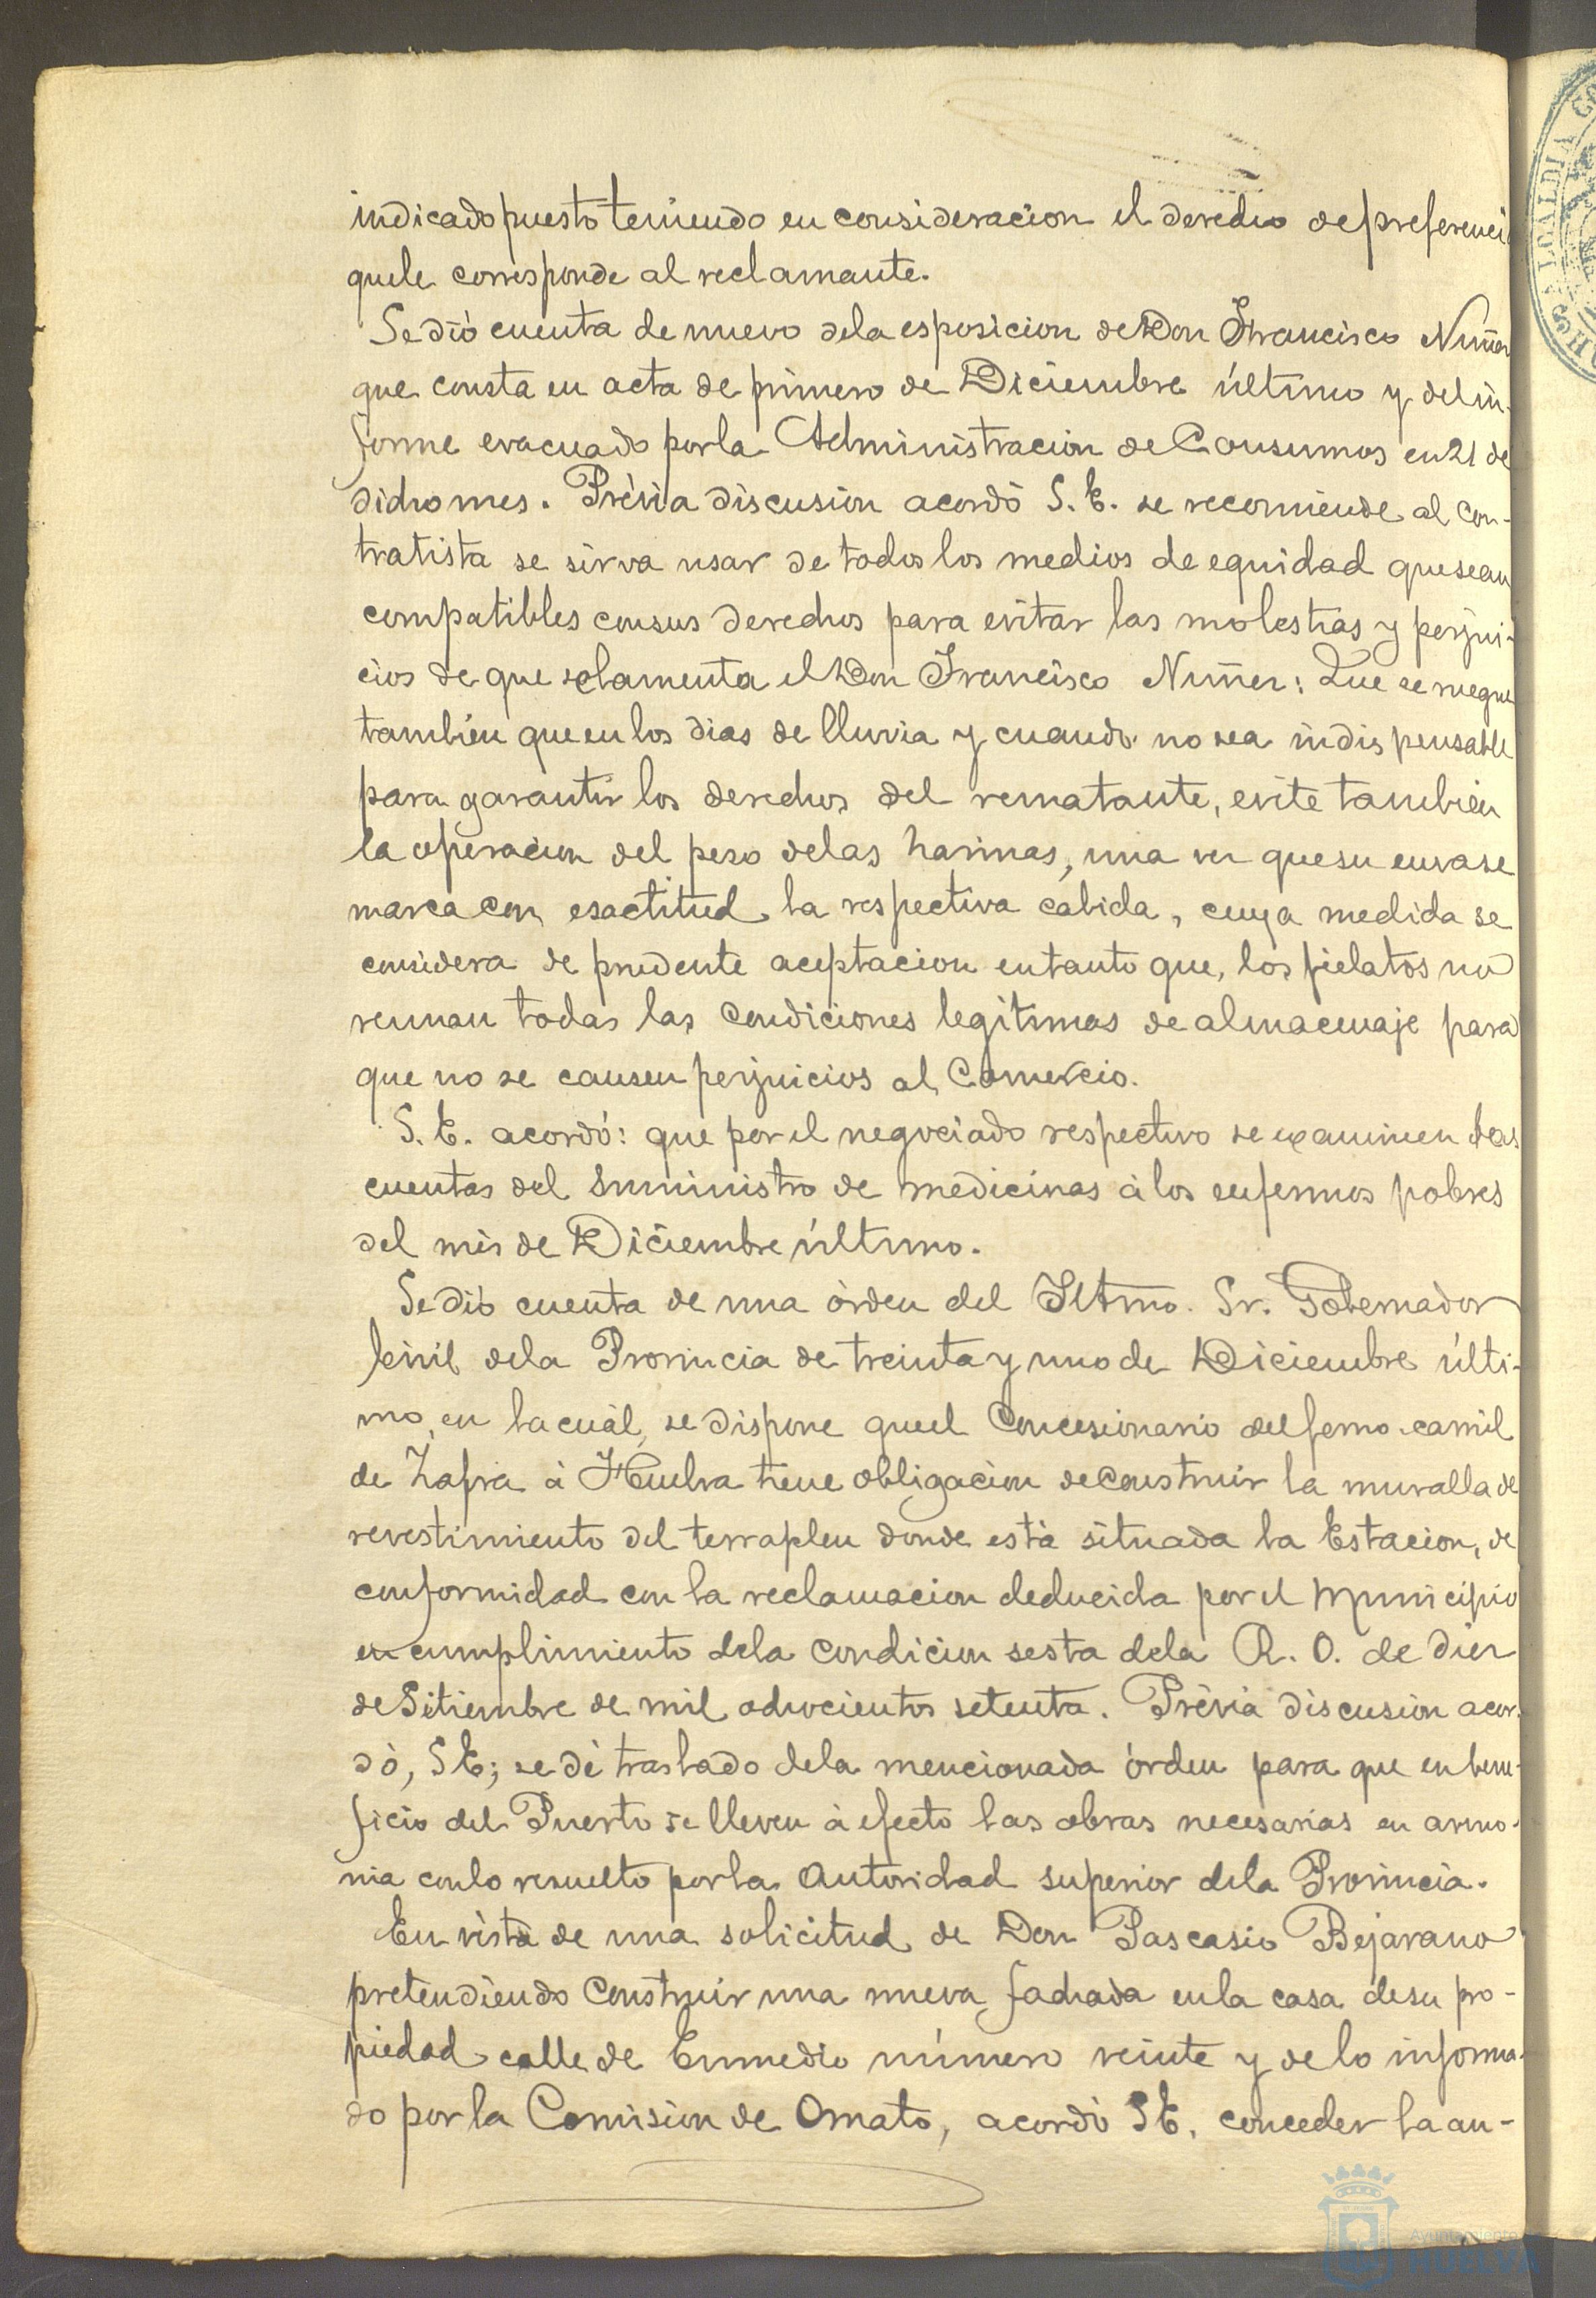 indicado puesto teniendo en consideracion el derecho de preferenci
que le corresponde al reclamante.
Se dió cuenta de nuevo de la esposicion de Don Francisco Nuñez
que consta en acta de primero de Diciembre último y del in-
forme evacuado por la Administracion de Consumos en 21 de
dicho mes. Prévia discusion acordó S. E. se recomiende al con-
tratista se sirva usar de todos los medios de equidad que sean
compatibles con sus derechos para evitar las molestias y perjui-
cios de que se lamenta el Don Francisco Nuñez: Que se ruegue
tambien que en los dias de lluvia y cuando no sea indispensable
para garantir los derechos del rematante, evite tambien
la operacion del peso de las harinas, una vez que su envase
marca con esactitud la respectiva cabida, cuya medida se
considera de prudente aceptacion en tanto que, los fielatos no
reunan todas las condiciones legítimas de almacenaje para
que no se causen perjuicios al Comercio.
S. E. acordó: que por el negociado respectivo se examinen las
cuentas del suministro de medicinas á los enfermos pobres
del mes de Diciembre último.
Se dió cuenta de una órden del Iltmo. Sr. Gobernador
Civil de la Provincia de treinta y uno de Diciembre últi-
mo, en la cuál, se dispone que el Concesionario del ferro-carril
de Zafra á Huelva tiene obligacion de construir la muralla de
revestimiento del terraplen donde está situada la Estacion, de
conformidad con la reclamacion deducida por el Municipio
en cumplimiento de la condicion sesta de la R. O. de diez
de Setiembre de mil ochocientos setenta. Prévia discusion acor-
dó, S E; se dé traslado de la mencionada órden para que en bene-
ficio del Puerto se lleven á efecto las obras necesarias en armo-
nia con lo resuelto por la Autoridad superior de la Provincia.
En vista de una solicitud de Don Pascasio Bejarano
pretendiendo construir una nueva fachada en la casa de su pro-
piedad calle de Enmedio número veinte y de lo informa-
do por la Comision de Ornato, acordó S E. conceder la au-
Ayuntamiento
HUELVA